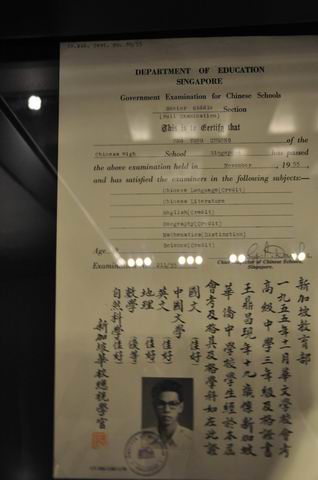 DEPARTMENT OF EDUCATION
SINGAPORE
Government Examination for Chinese Schools
Senior Middle Section
(Full Examination)
This is to Certify that
of the
Chinese High School Singapore has passed
the above examination held in November, 1955,
and has satisfied the examiners in the following subjects:—
Chinese Language(Credit)
Chinese Literature
English(Credit)
Geography(Credit)
Mathematics(Distinction)
Science(Credit)
Age
Chinese Schools,
Singapore.
新加坡教育部
一九五五年十一月華文學校會考
高級中學三年級及格證書
王鼎昌現年十九歲係新加坡
華僑中學校學生經於本屆
會考及格其及格學科如左此證
國文 (佳好)
中國文學
英文 (佳好)
地理 (佳好)
數學 (優等)
自然科學(佳好)
新加坡華校總視學官